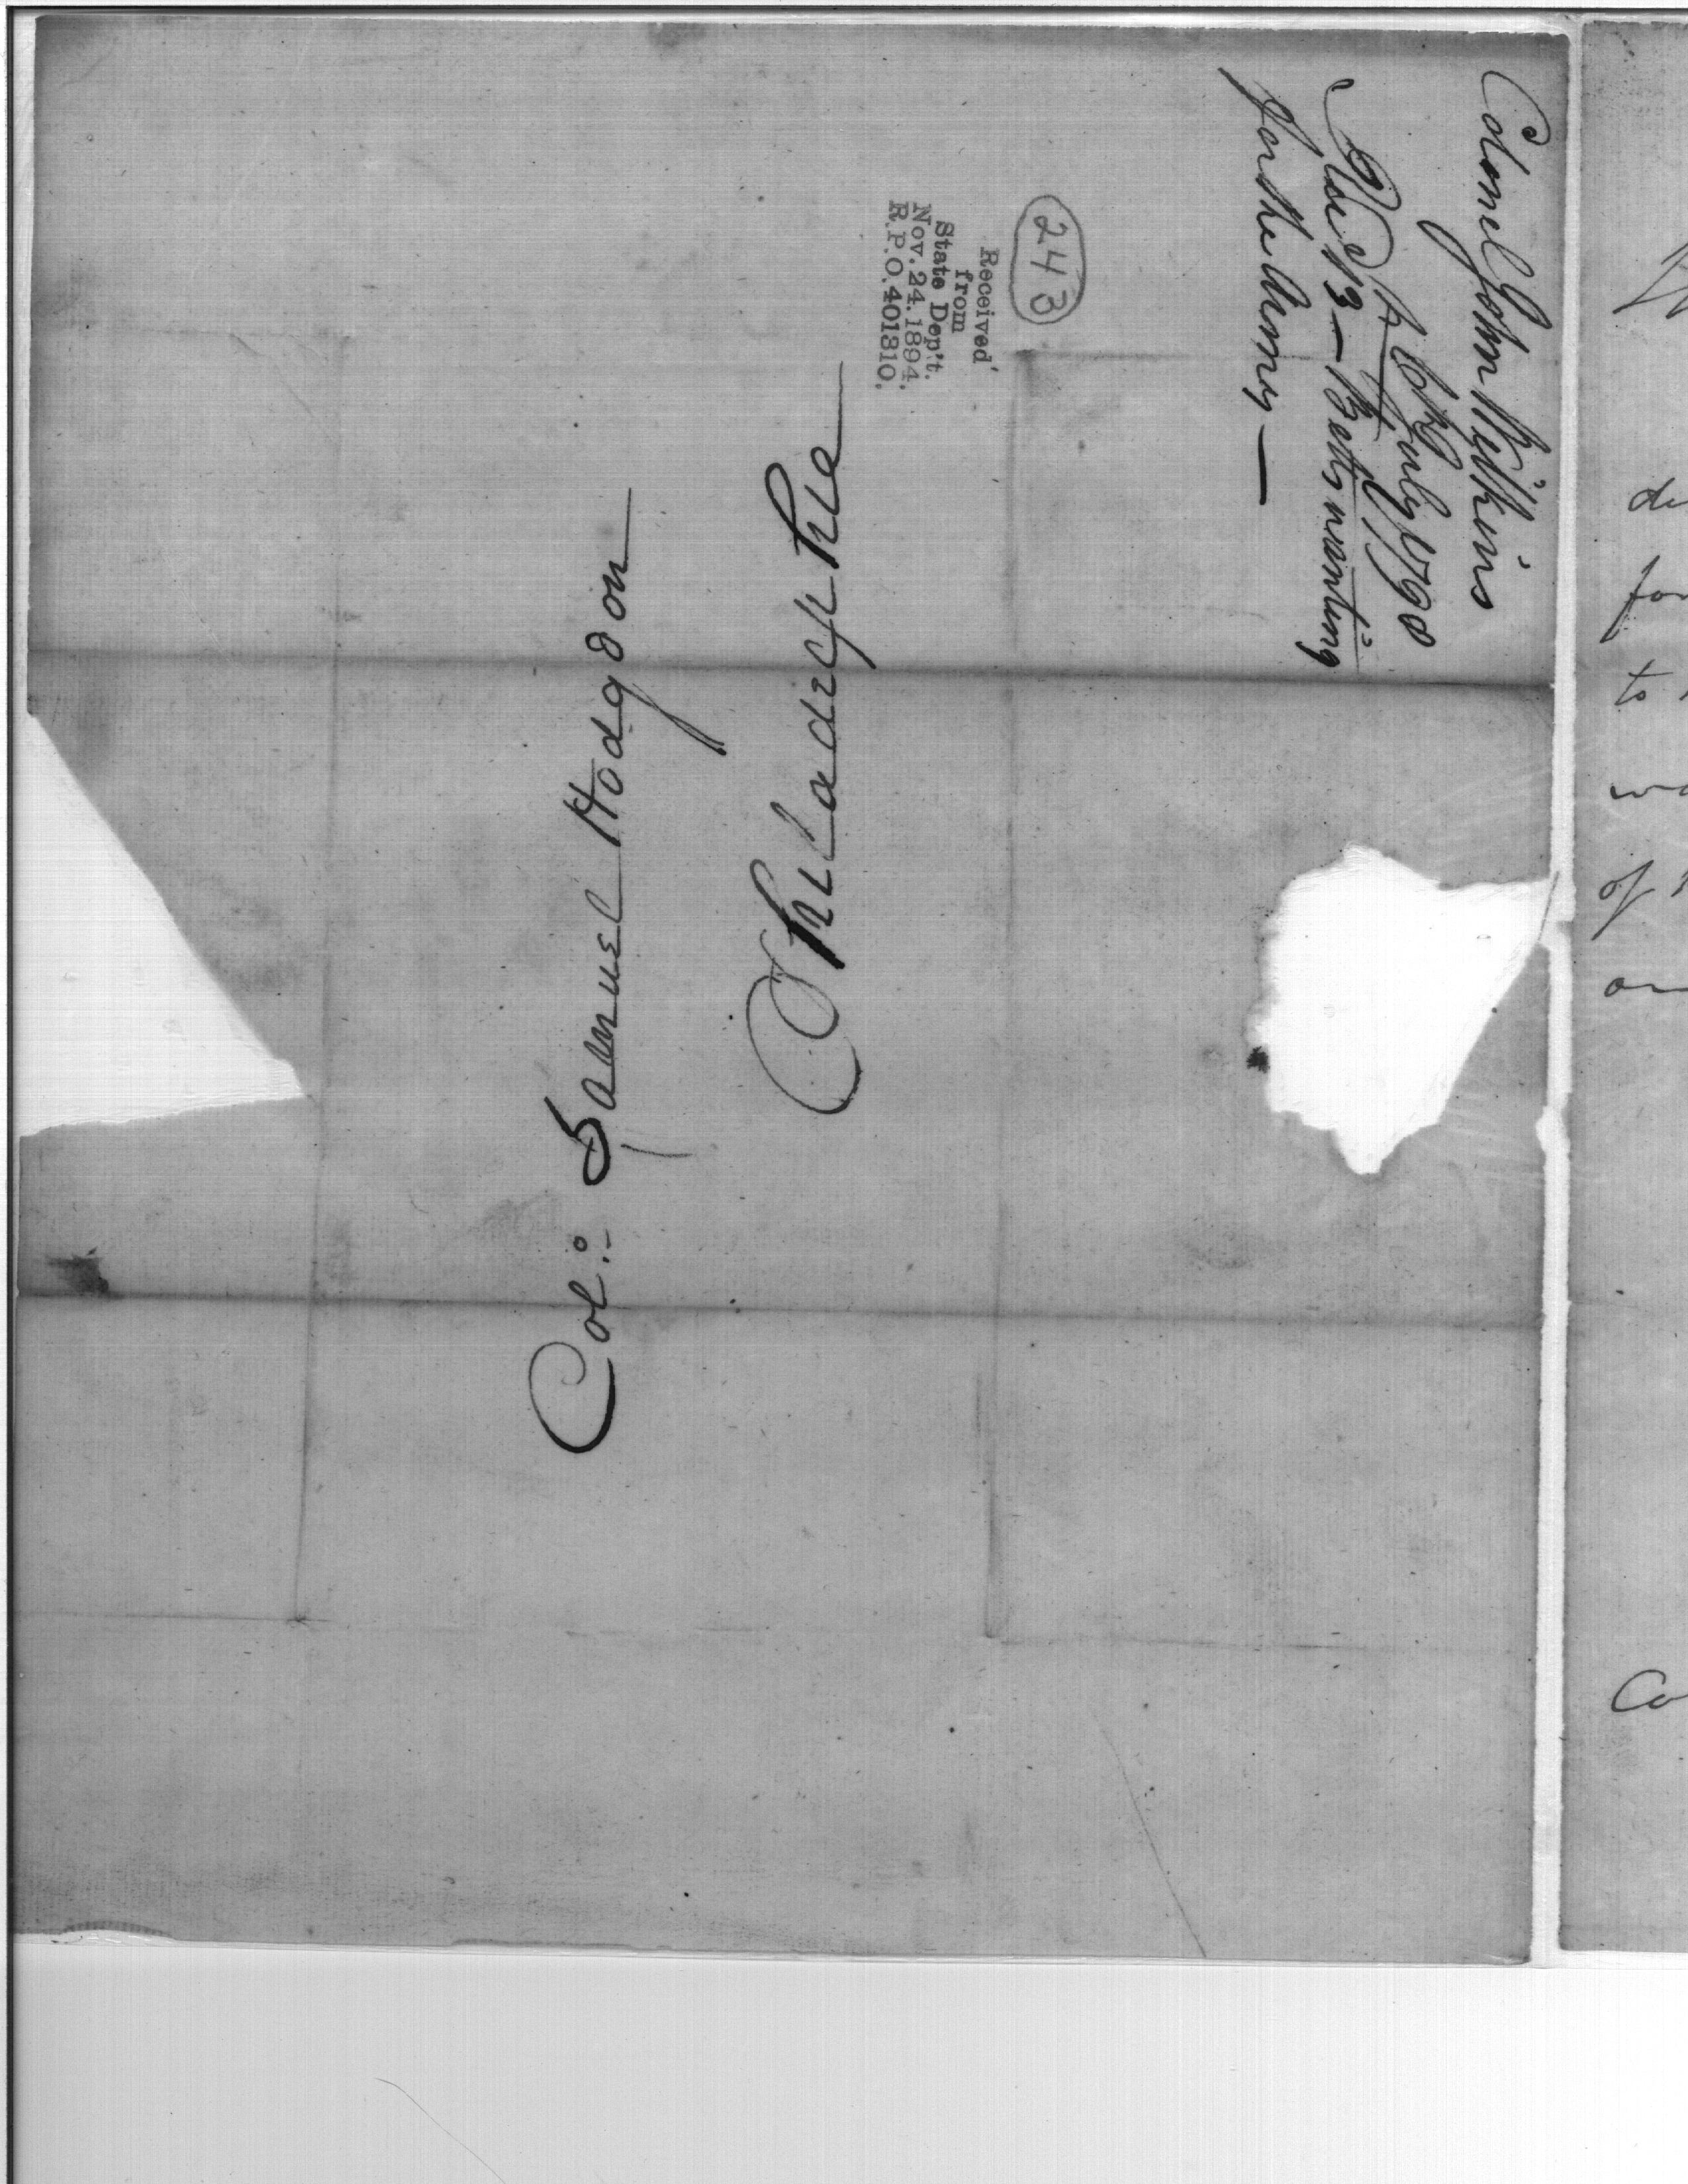 Colonel John Wilkins
July 1798
13 — Belts wanting
for the Army —
243
Received
from
State Dep't.
Nov. 24. 1894.
R.P.O. 401810.
Col: Samuel Hodgdon
Philadelphia
de
for
to
wa
of
on
Co